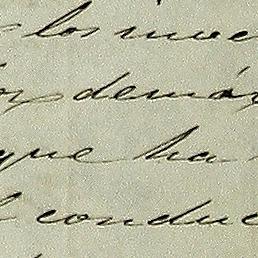 los mue
los demás
que ha
l conduc